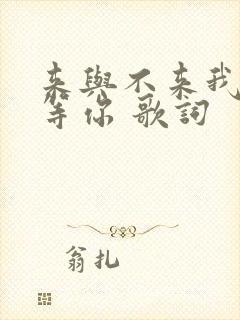 来與不来我
等你 歌詞
翁扎